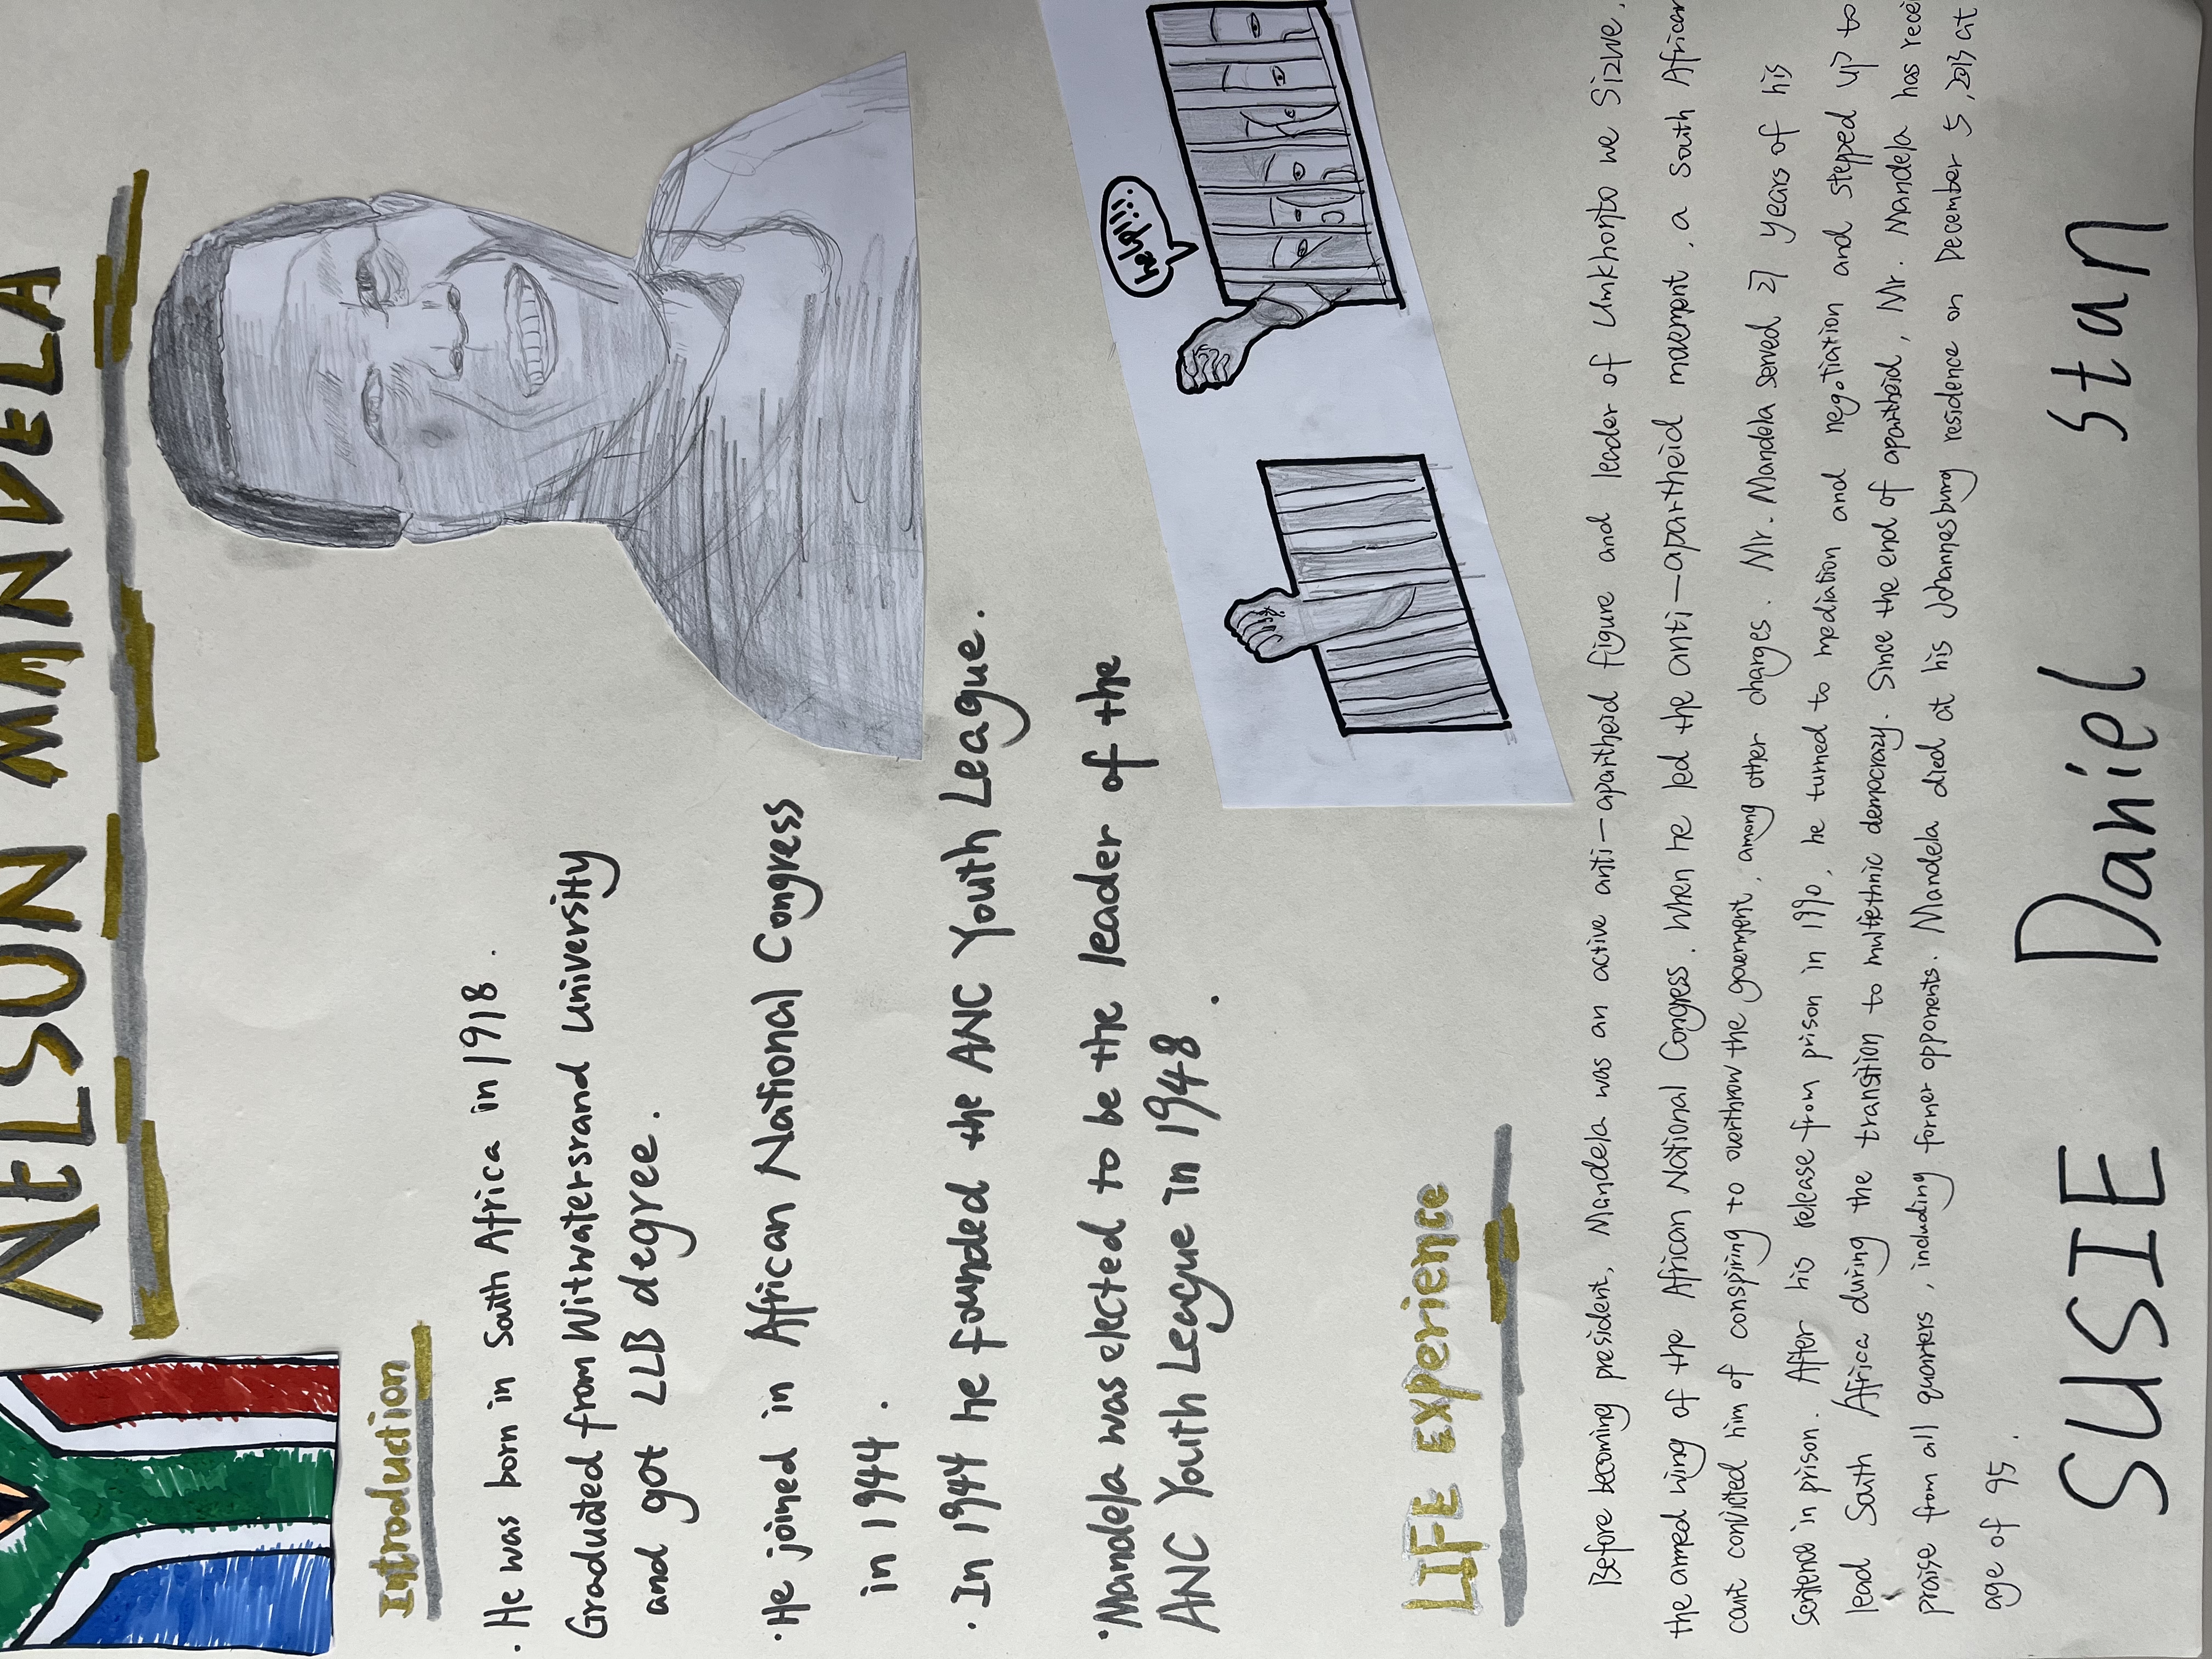 NELSON MANDELA
Introduction
· He was born in South Africa in 1918.
Graduated from Witwatersrand University
and got LLB degree.
· He joined in African National Congress
in 1944.
· In 1944 he founded the ANC Youth League.
· Mandela was elected to be the leader of the
ANC Youth League in 1948.
help!!!
LIFE EXPErience
Before becoming president, Mandela was an active anti-apartheid figure and leader of Umkhonto we Sizwe,
the armed wing of the African National Congress. When he led the anti-apartheid movement, a south African
court convicted him of conspiring to overthrow the government, among other charges. Mr. Mandela served 27 years of his
sentence in prison. After his release from prison in 1990, he turned to mediation and negotiation and stepped up to
lead South Africa during the transition to multiethnic democrazy. Since the end of apartheid, Mr. Mandela has recei
praise from all quarters, including former opponents. Mandela died at his Johannesburg residence on December 5, 2013 at
age of 95.
SUSIE Daniel Stan